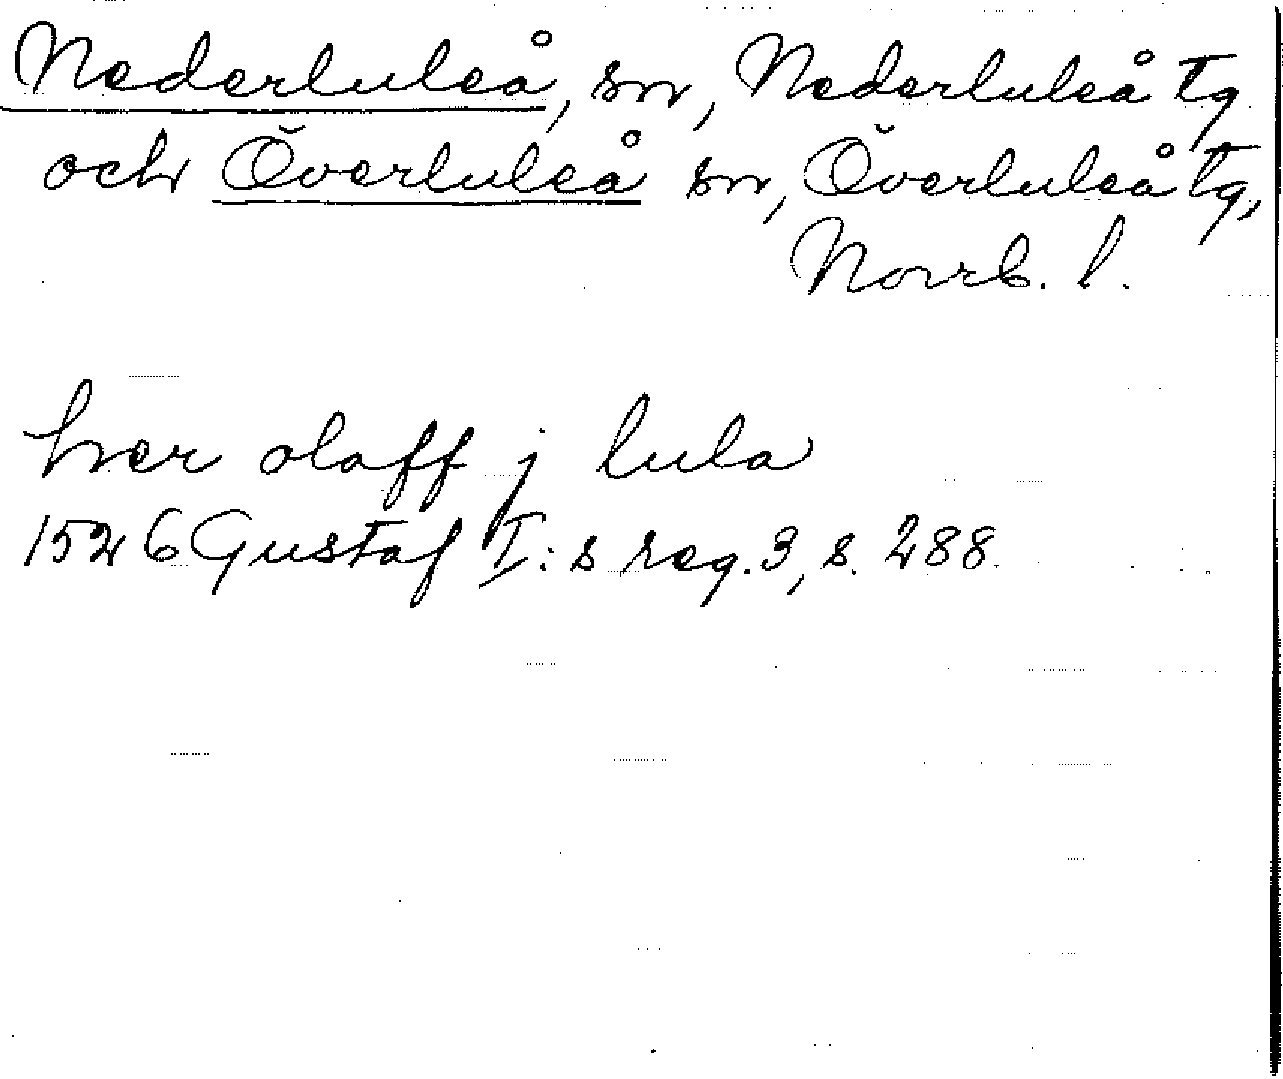 Nederluleå, sn, Nederluleå tg
och Överluleå sn, Överluleå tg,
Norrb. l.
hver olaff j lula
1526 Gustaf I:s reg. 3, s. 288